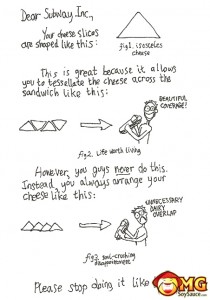 Dear Subway Inc.,
Your cheese slices
are shaped like this:
fig 1. isosceles
cheese
This is great because it allows
you to tessellate the cheese across the
sandwich like this:
BEAUTIFUL
COVERAGE!
fig 2. Life worth living
However, you guys never do this.
Instead, you always arrange your
cheese like this:
UNNECESSARY
DAIRY
OVERLAP
fig 3. soul-crushing
disappointment
Please stop doing it like
OMG
SoySauce.com